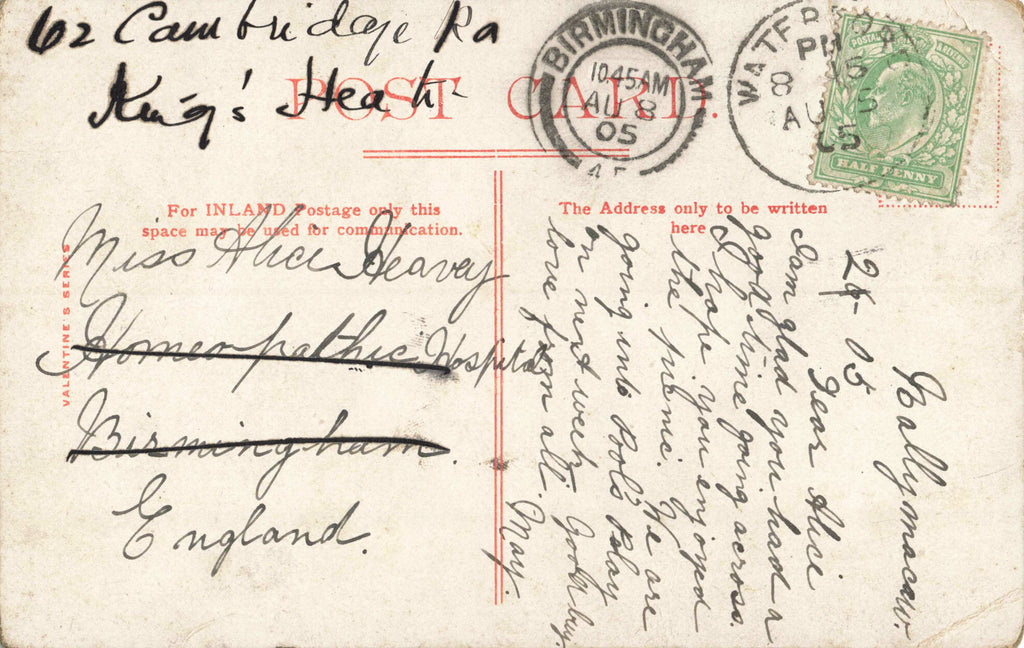 62 Cambridge Rd
King's Heath
POST CARD.
BIRMINGHAM
10.45AM
AU 8
05
WATERFO
PM
8 15
AU 5
05
POSTAGE
HALF PENNY
For INLAND Postage only this
space may be used for communication.
The Address only to be written
here
VALENTINE'S SERIES
Miss Alice Heavey
Homeopathic Hospital
Birmingham.
England.
Ballymacaw.
05
Dear Alice
I am glad you had a
good time going across.
I hope you enjoyed
the picnic. We are
going into
on next week. Good bye.
love from all. May.